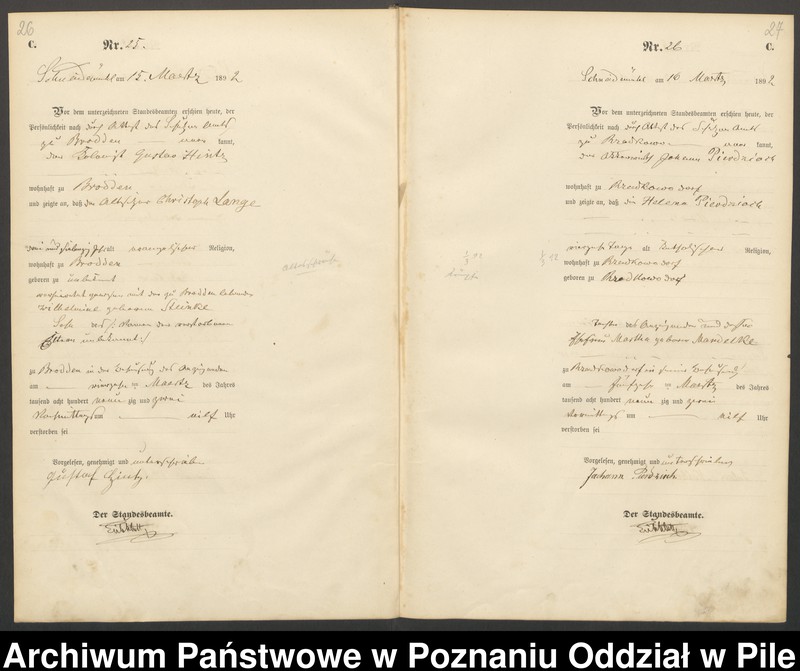 26
C.
Nr. 25.
Schneidemühl am 15. Maertz 1892
Vor dem unterzeichneten Standesbeamten erschien heute, der
Persönlichkeit nach durch Attest des Schulzen Amts
zu Brodden kannt,
der Gustav Hintz
wohnhaft zu Brodden
und zeigte an, daß der Altsitzer Christoph Lange
alt evangelischer Religion,
wohnhaft zu Brodden
geboren zu unbekannt
verheirathet gewesen mit der zu Brodden lebenden
Wilhelmine geborenen Steinke
Sohn des
Eltern unbekannt
zu Brodden in der Behausung des Anzeigenden
am vierzehn ten Maertz des Jahres
tausend acht hundert neun zig und zwei
Vormittags um elf Uhr
verstorben sei
Vorgelesen, genehmigt und unterschrieben
Gustaf Hintz
Der Standesbeamte.
27
Nr. 26
C.
Schneidemühl am 16 Maertz 1892
Vor dem unterzeichneten Standesbeamten erschien heute, der
Persönlichkeit nach durch Attest des Schulzen Amts
zu Rzadkowo kannt,
der Johann Pierdzioch
wohnhaft zu Rzadkowo Dorf
und zeigte an, daß die Helena Pierdzioch
vierzehn Tage alt katholischer Religion,
wohnhaft zu Rzadkowo Dorf
geboren zu Rzadkowo Dorf
Tochter des Anzeigenden und dessen
Ehefrau Martha geboren Mandelke
zu Rzadkowo Dorf in seiner Behausung
am fünfzehn ten Maertz des Jahres
tausend acht hundert neun zig und zwei
Vormittags um elf Uhr
verstorben sei
Vorgelesen, genehmigt und unterschrieben
Johann
Der Standesbeamte.
Archiwum Państwowe w Poznaniu Oddział w Pile